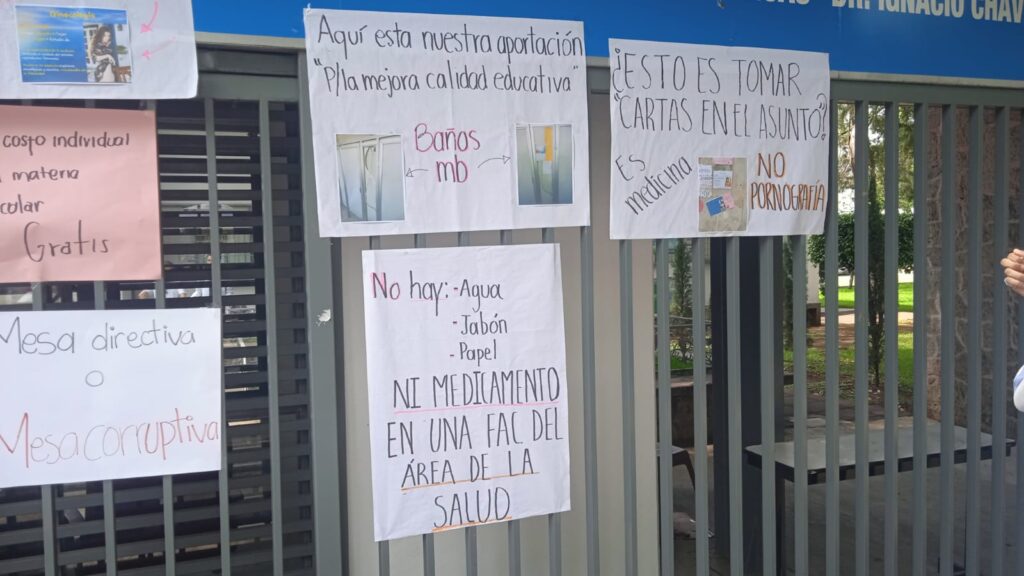 DR. IGNACIO CHÁV
Ginecología
Aquí esta nuestra aportación
"P/la mejora calidad educativa"
Baños
mb
¿ESTO ES TOMAR
"CARTAS EN EL ASUNTO?
Es
medicina
NO
PORNOGRAFÍA
costo individual
materia
colar
Gratis
No hay: - Agua
- Jabón
- Papel
NI MEDICAMENTO
EN UNA FAC DEL
ÁREA DE LA
SALUD
Mesa directiva
o
Mesa corruptiva